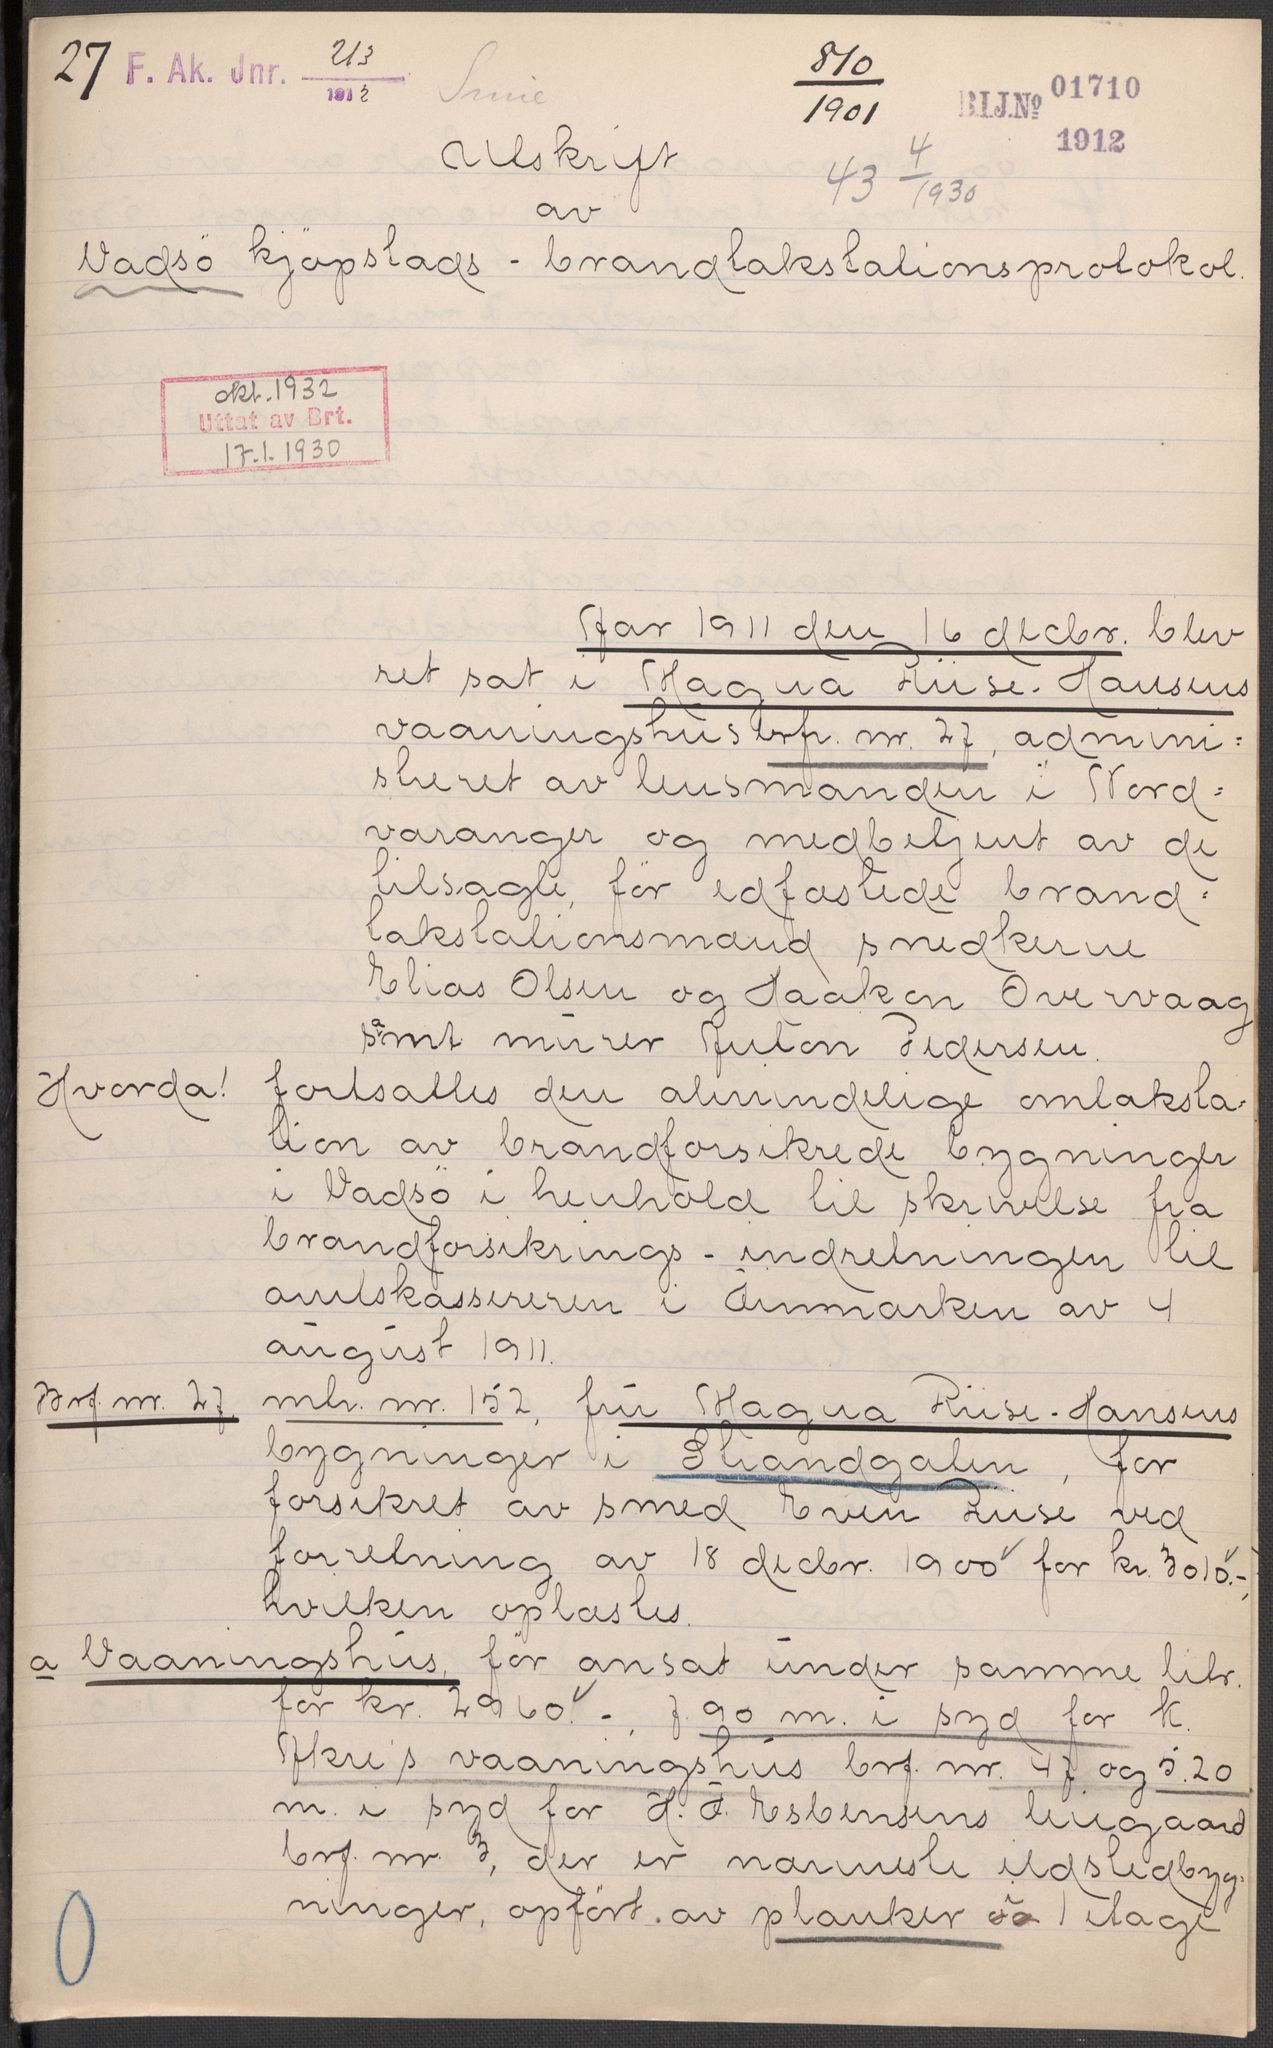 27 F. Ak. Jnr. 213
1912
810
1901
B.I.J.No 01710
1912
43 4
1930
Utskrift
av
Vadsö kjöpstads - brandtakstationsprotokol.
okt. 1932
Uttat av Brt.
17.1.1930
Aar 1911 den 16 decbr. blev
ret sat i Magna Riise-Hansens
vaaningshus brf. nr. 27, admini=
streret av lensmanden i Nord=
varanger og medbetjent av de
tilsagte, för edfæstede brand=
takstationsmænd snedkerne
Elias Olsen og Haakon Overvaag
samt murer Anton Pedersen.
Hvorda! fortsattes den almindelige omtaksta-
tion av brandforsikrede bygninger
i Vadsö i henhold til skrivelse fra
brandforsikrings-indretningen til
amtskassereren i Finmarken av 4
august 1911.
Brf. nr. 27 mtr. nr. 152, fru Magna Riise-Hansens
bygninger i Strandgaten, for
forsikret av smed Even Riise ved
forretning av 18 decbr. 1900 for kr. 3010.-,
hvilken oplæstes.
a Vaaningshus, för ansat under samme litr.
for kr. 2960.-, 7.90 m. i syd for K.
Akre's vaaningshus brf. nr. 47 og 5.20
m. i syd for H. F. Esbensens leiegaard
brf. nr. 3, der er nærmeste ildstedbyg=
ninger, opfört av planker 1 etage